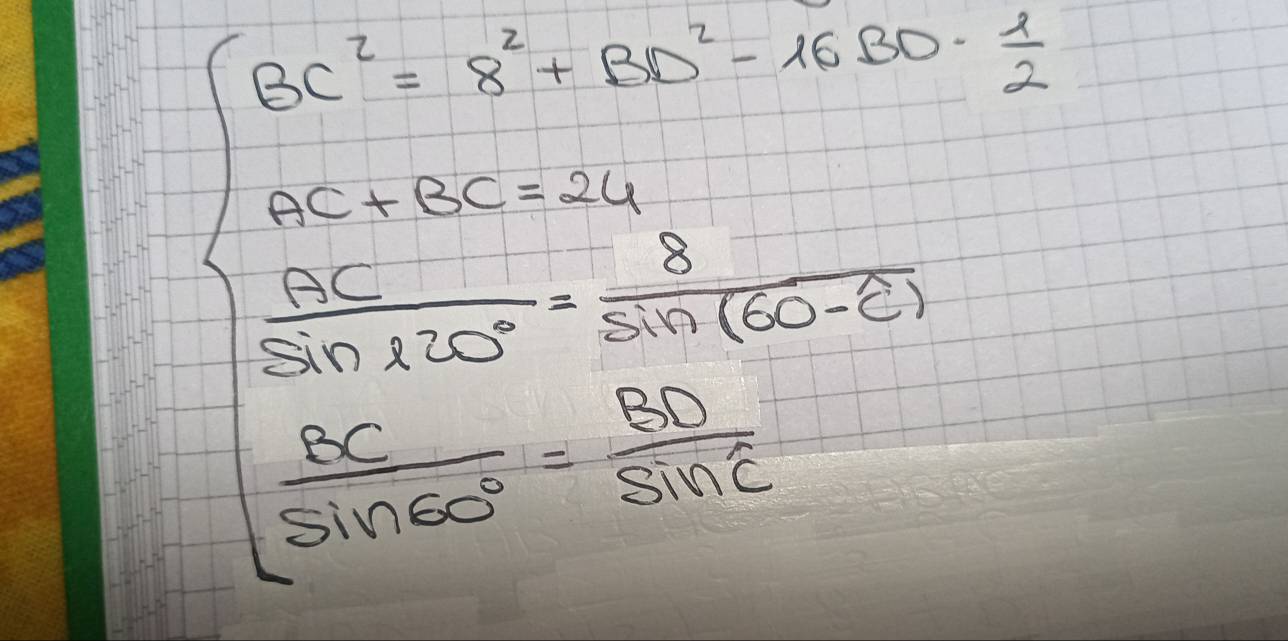 BC² = 8² + BD² - 16 BD · 1/2
AC + BC = 24
AC/sin 120° = 8/sin (60 - Ĉ)
BC/sin 60° = BD/sin Ĉ